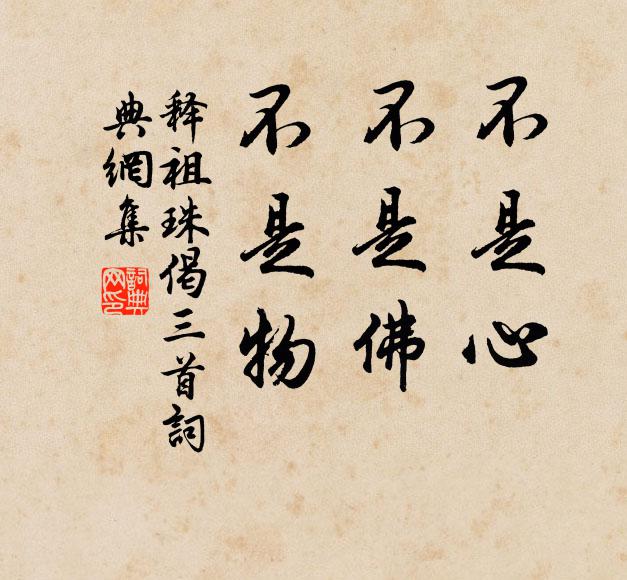 不是心
不是佛
不是物
释祖珠偈三首詞
典網集
詞典
网印